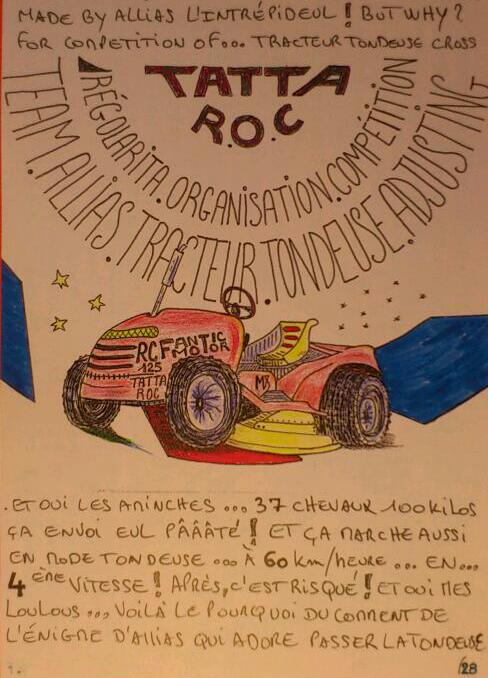 MADE BY ALLIAS L'INTRÉPIDEUL ! BUT WHY ?
FOR COMPETITION OF... TRACTEUR TONDEUSE CROSS
TATTA
R.O.C
RÉGOLARITA.ORGANISATION.COMPÉTITION
TEAM.ALLIAS.TRACTEUR.TONDEUSE.ADJUSTING
RC FANTIC
MOTOR
125
TATTA
ROC
M3
.ET OUI LES AMINCHES ... 37 CHEVAUX 100 KILOS
ÇA ENVOI EUL PÂÂÂTÉ ! ET ÇA MARCHE AUSSI
EN MODE TONDEUSE ... À 60 km/HEURE ... EN...
4ÈME VITESSE ! APRÈS, C'EST RISQUÉ ! ET OUI MES
LOULOUS ... VOILÀ LE POURQUOI DU COMMENT DE
L'ÉNIGME D'ALLIAS QUI ADORE PASSER LA TONDEUSE
28